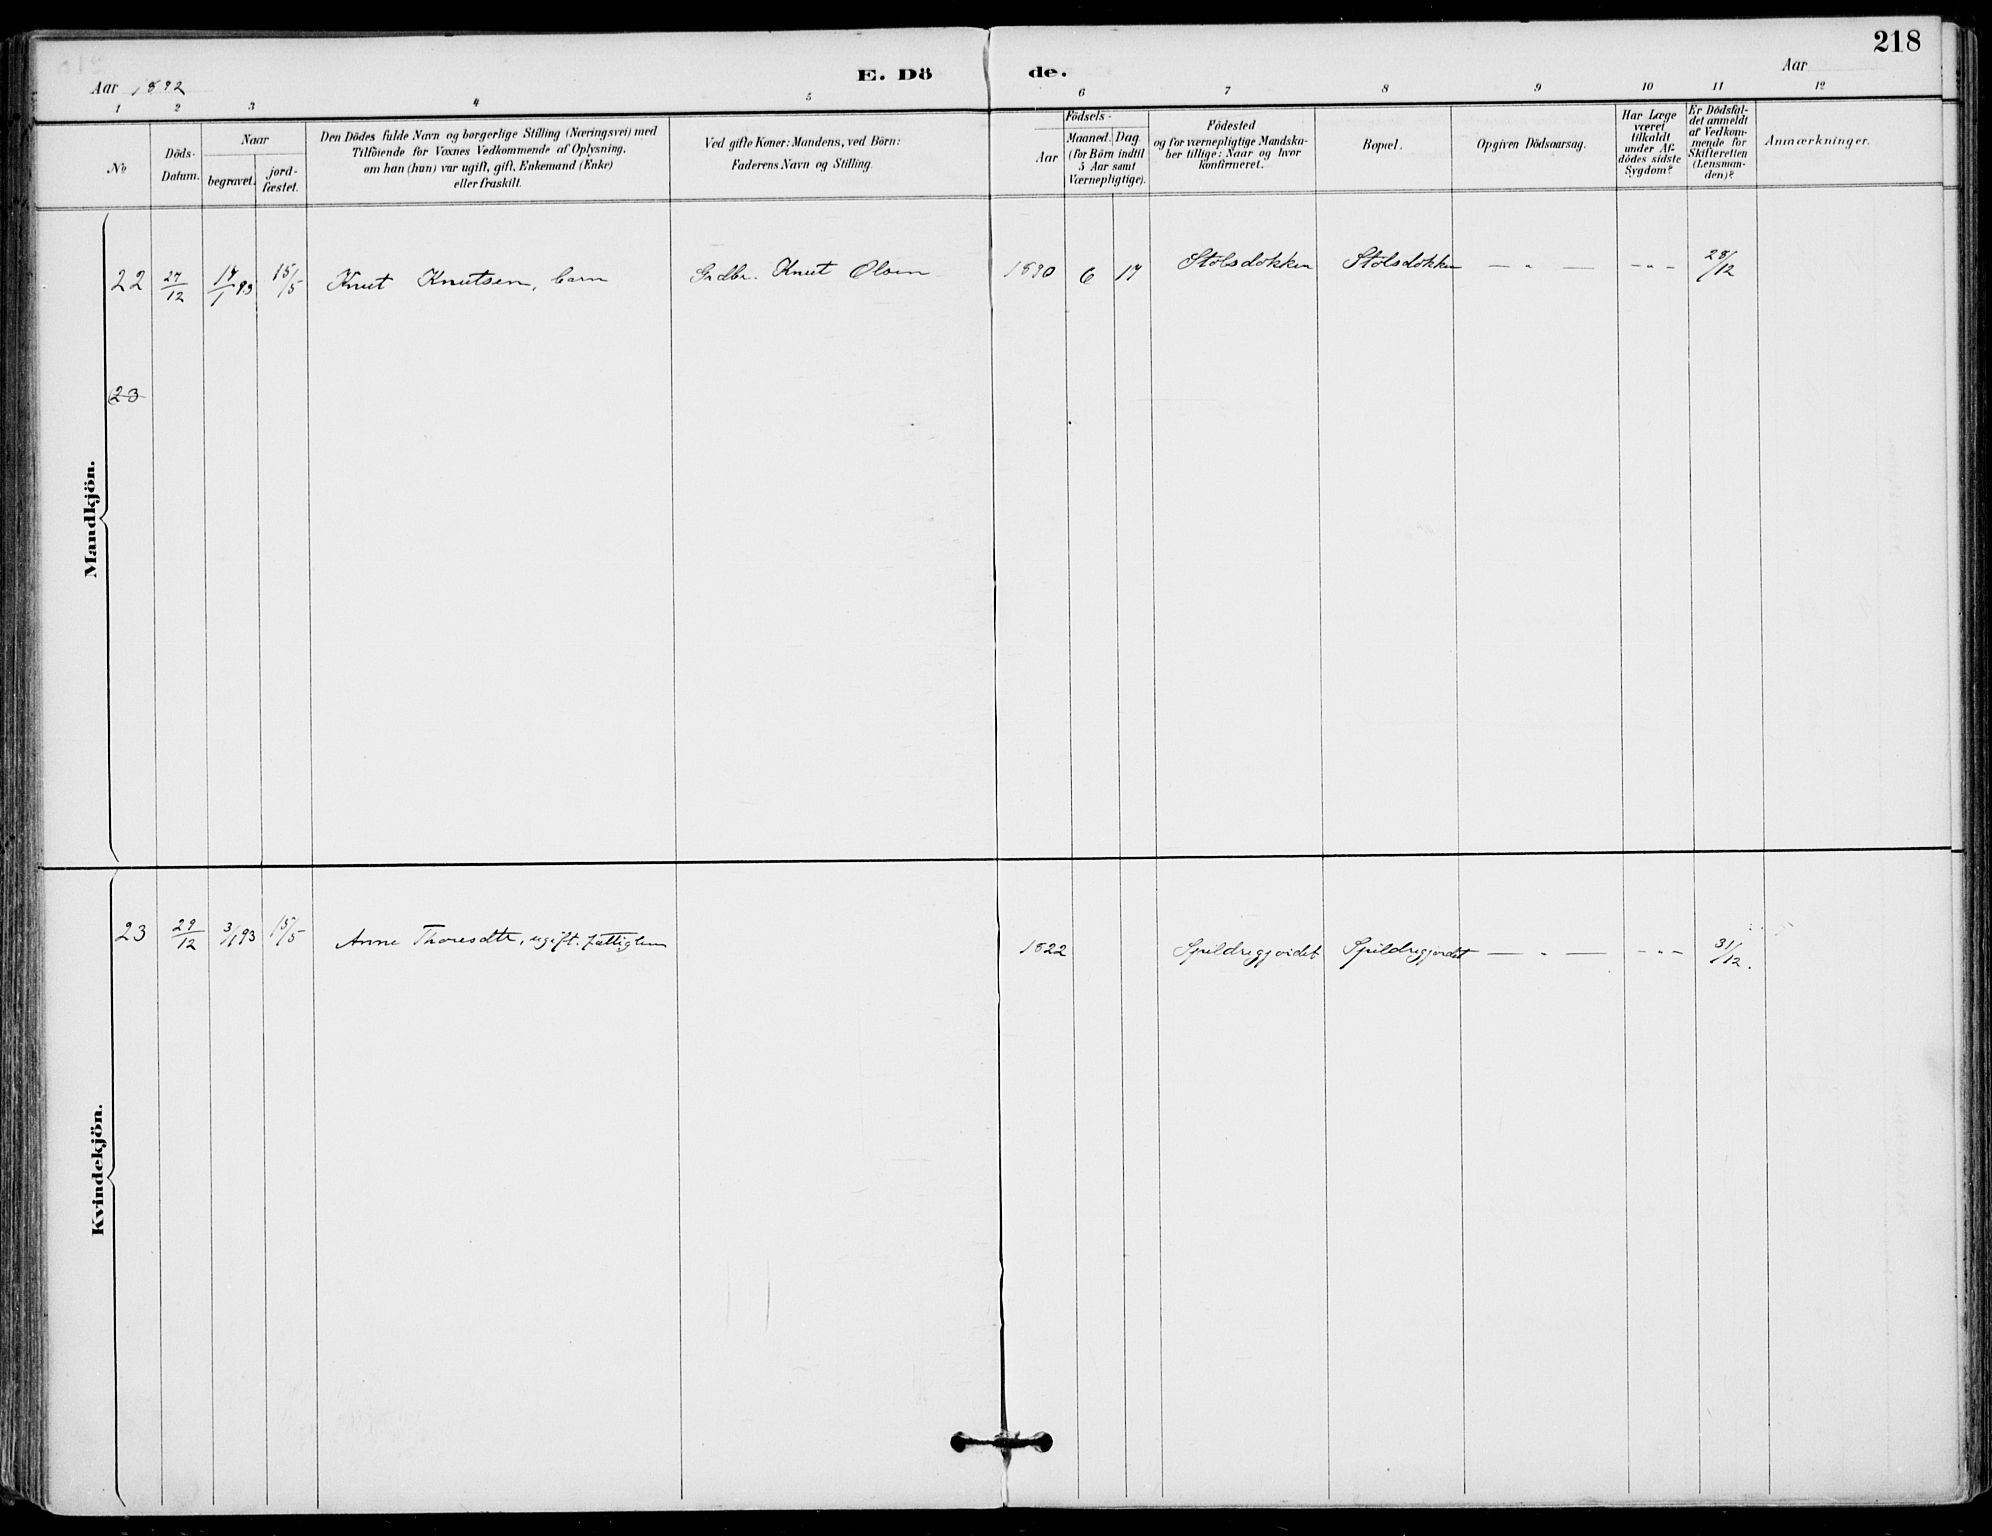 218
Aar 1892
E. Dö de.
Aar
1 2 3 4 5 6 7 8 9 10 11 12
No
Döds-
Datum.
Naar
begravet.
jord-
fæstet.
Den Dödes fulde Navn og borgerlige Stilling (Næringsvei) med
Tilföiende for Voxnes Vedkommende af Oplysning,
om han (hun) var ugift, gift, Enkemand (Enke)
eller fraskilt.
Ved gifte Koner: Mandens, ved Börn:
Faderens Navn og Stilling.
Födsels-
Aar
Maaned. Dag.
(for Börn indtil
5 Aar samt
Værnepligtige).
Födested
og for værnepligtige Mandska-
ber tillige: Naar og hvor
konfirmeret.
Bopæl.
Opgiven Dödsaarsag.
Har Læge
været
tilkaldt
under Af-
dödes sidste
Sygdom?
Er Dödsfal-
det anmeldt
af Vedkom-
mende for
Skifteretten
(Lensman-
den)?
Anmærkninger.
Mandkjön.
22 27/12 14/1 93 15/5 Knut Knutsen, barn Grdbr. Knut Olsen 1890 6 17 Stölsdokken Stölsdokken — " — - " - 28/12
23
Kvindekjön.
23 29/12 3/1 93 15/5 Anne Thoresdtr, ugift. fattiglem 1822 Spildregjordet Spildregjordet — " — - " - 31/12.